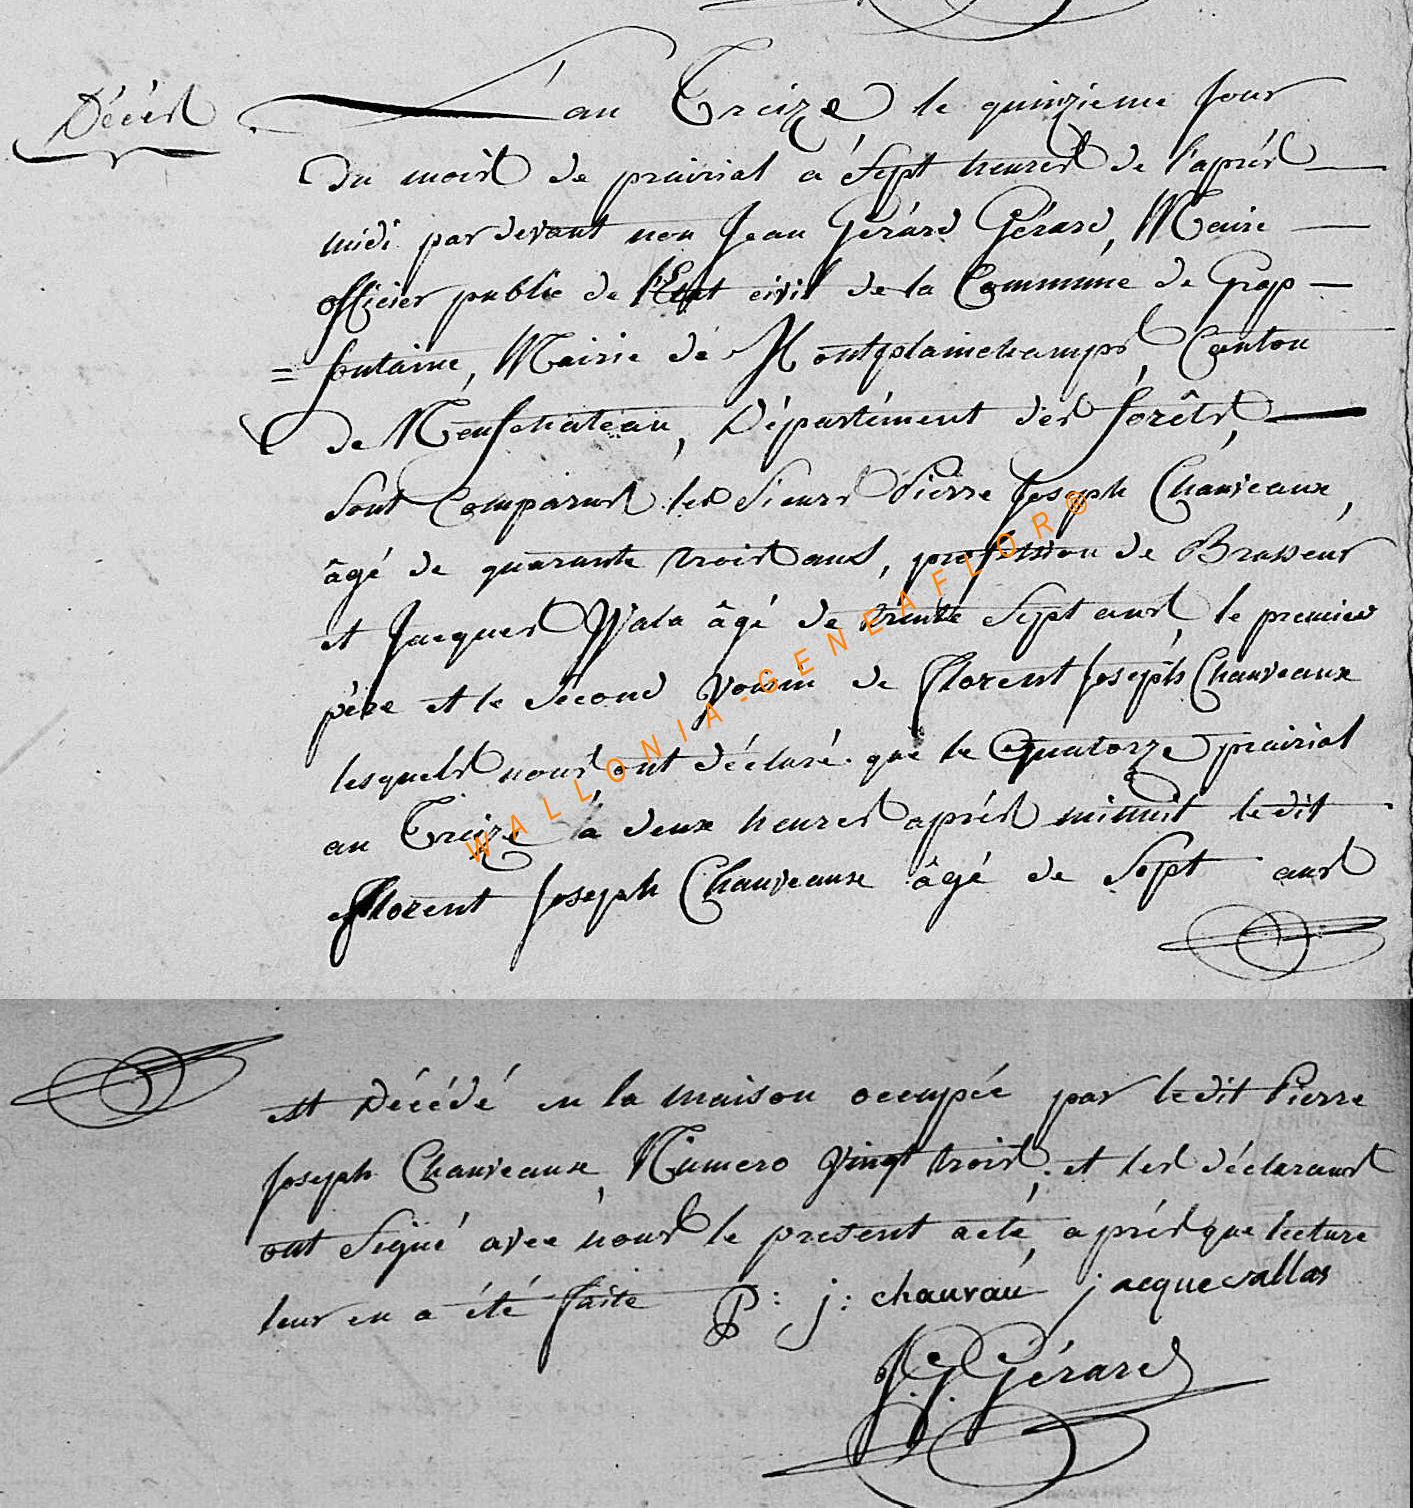 Décès
L'an Treize le quinzieme jour
Du mois de prairial à Sept heures de l'après
midi par devant nou Jean Gérard Gérard, Maire
officier public de l'Etat civil de la Commune de Grap
= fontaine, Mairie de Montplainchamps, Canton
de Neufchateau, Département des forêts,
Sont Comparus les Sieurs Pierre Joseph Chauveaux,
âgé de quarante trois ans, profession de Brasseur
et Jacques Wala âgé de trente Sept ans, le premier
père et le Second voisin de Florent Joseph Chauveaux
lesquels nous ont déclaré que le Quatorze prairial
an Treize à deux heures après minuit ledit
Florent Joseph Chauveaux âgé de Sept ans
est Décédé en la maison occupée par ledit Pierre
Joseph Chauveaux, Numero vingt trois; et les déclarans
ont Signé avec nous le present acte, après que lecture
leur en a été faite P: j: chauvau jacque vallas
J. G. Gérard
WALLONIA-GENEAFLOR®